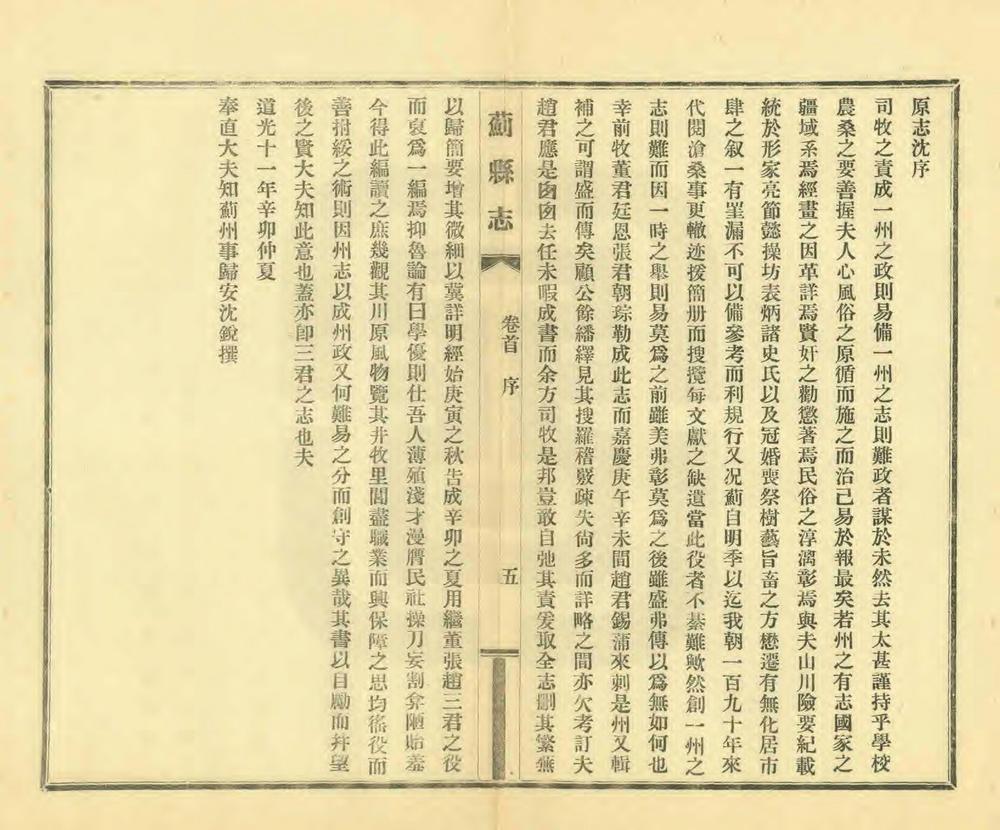 原志沈序
司牧之責成一州之政則易備一州之志則難政者謀於未然去其太甚謹持乎學校
農桑之要善握夫人心風俗之原循而施之而治已易於報最矣若州之有志國家之
疆域系焉經畫之因革詳焉賢奸之勸懲著焉民俗之淳漓彰焉與夫山川險要紀載
統於形家亮節懿操坊表炳諸史氏以及冠婚喪祭樹藝旨畜之方懋遷有無化居市
肆之叙一有罣漏不可以備參考而利規行又况薊自明季以迄我朝一百九十年來
代閱滄桑事更轍迹援簡册而搜攬每文獻之缺遺當此役者不綦難歟然創一州之
志則難而因一時之舉則易莫爲之前雖美弗彰莫爲之後雖盛弗傳以爲無如何也
幸前牧董君廷恩張君朝琮勒成此志而嘉慶庚午辛未間趙君錫蒲來刺是州又輯
補之可謂盛而傳矣顧公餘繙繹見其搜羅稽覈疎失尙多而詳略之間亦欠考訂夫
趙君應是囪囪去任未暇成書而余方司牧是邦豈敢自弛其責爰取全志刪其繁蕪
薊縣志
卷首 序
五
以歸簡要增其微細以冀詳明經始庚寅之秋告成辛卯之夏用繼董張趙三君之役
而裒爲一編焉抑魯論有曰學優則仕吾人薄殖淺才漫膺民社操刀妄割弇陋貽羞
今得此編讀之庶幾觀其川原風物覽其井牧里閭盡職業而興保障之思均徭役而
善拊綏之術則因州志以成州政又何難易之分而創守之異哉其書以自勵而幷望
後之賢大夫知此意也蓋亦卽三君之志也夫
道光十一年辛卯仲夏
奉直大夫知薊州事歸安沈銳撰